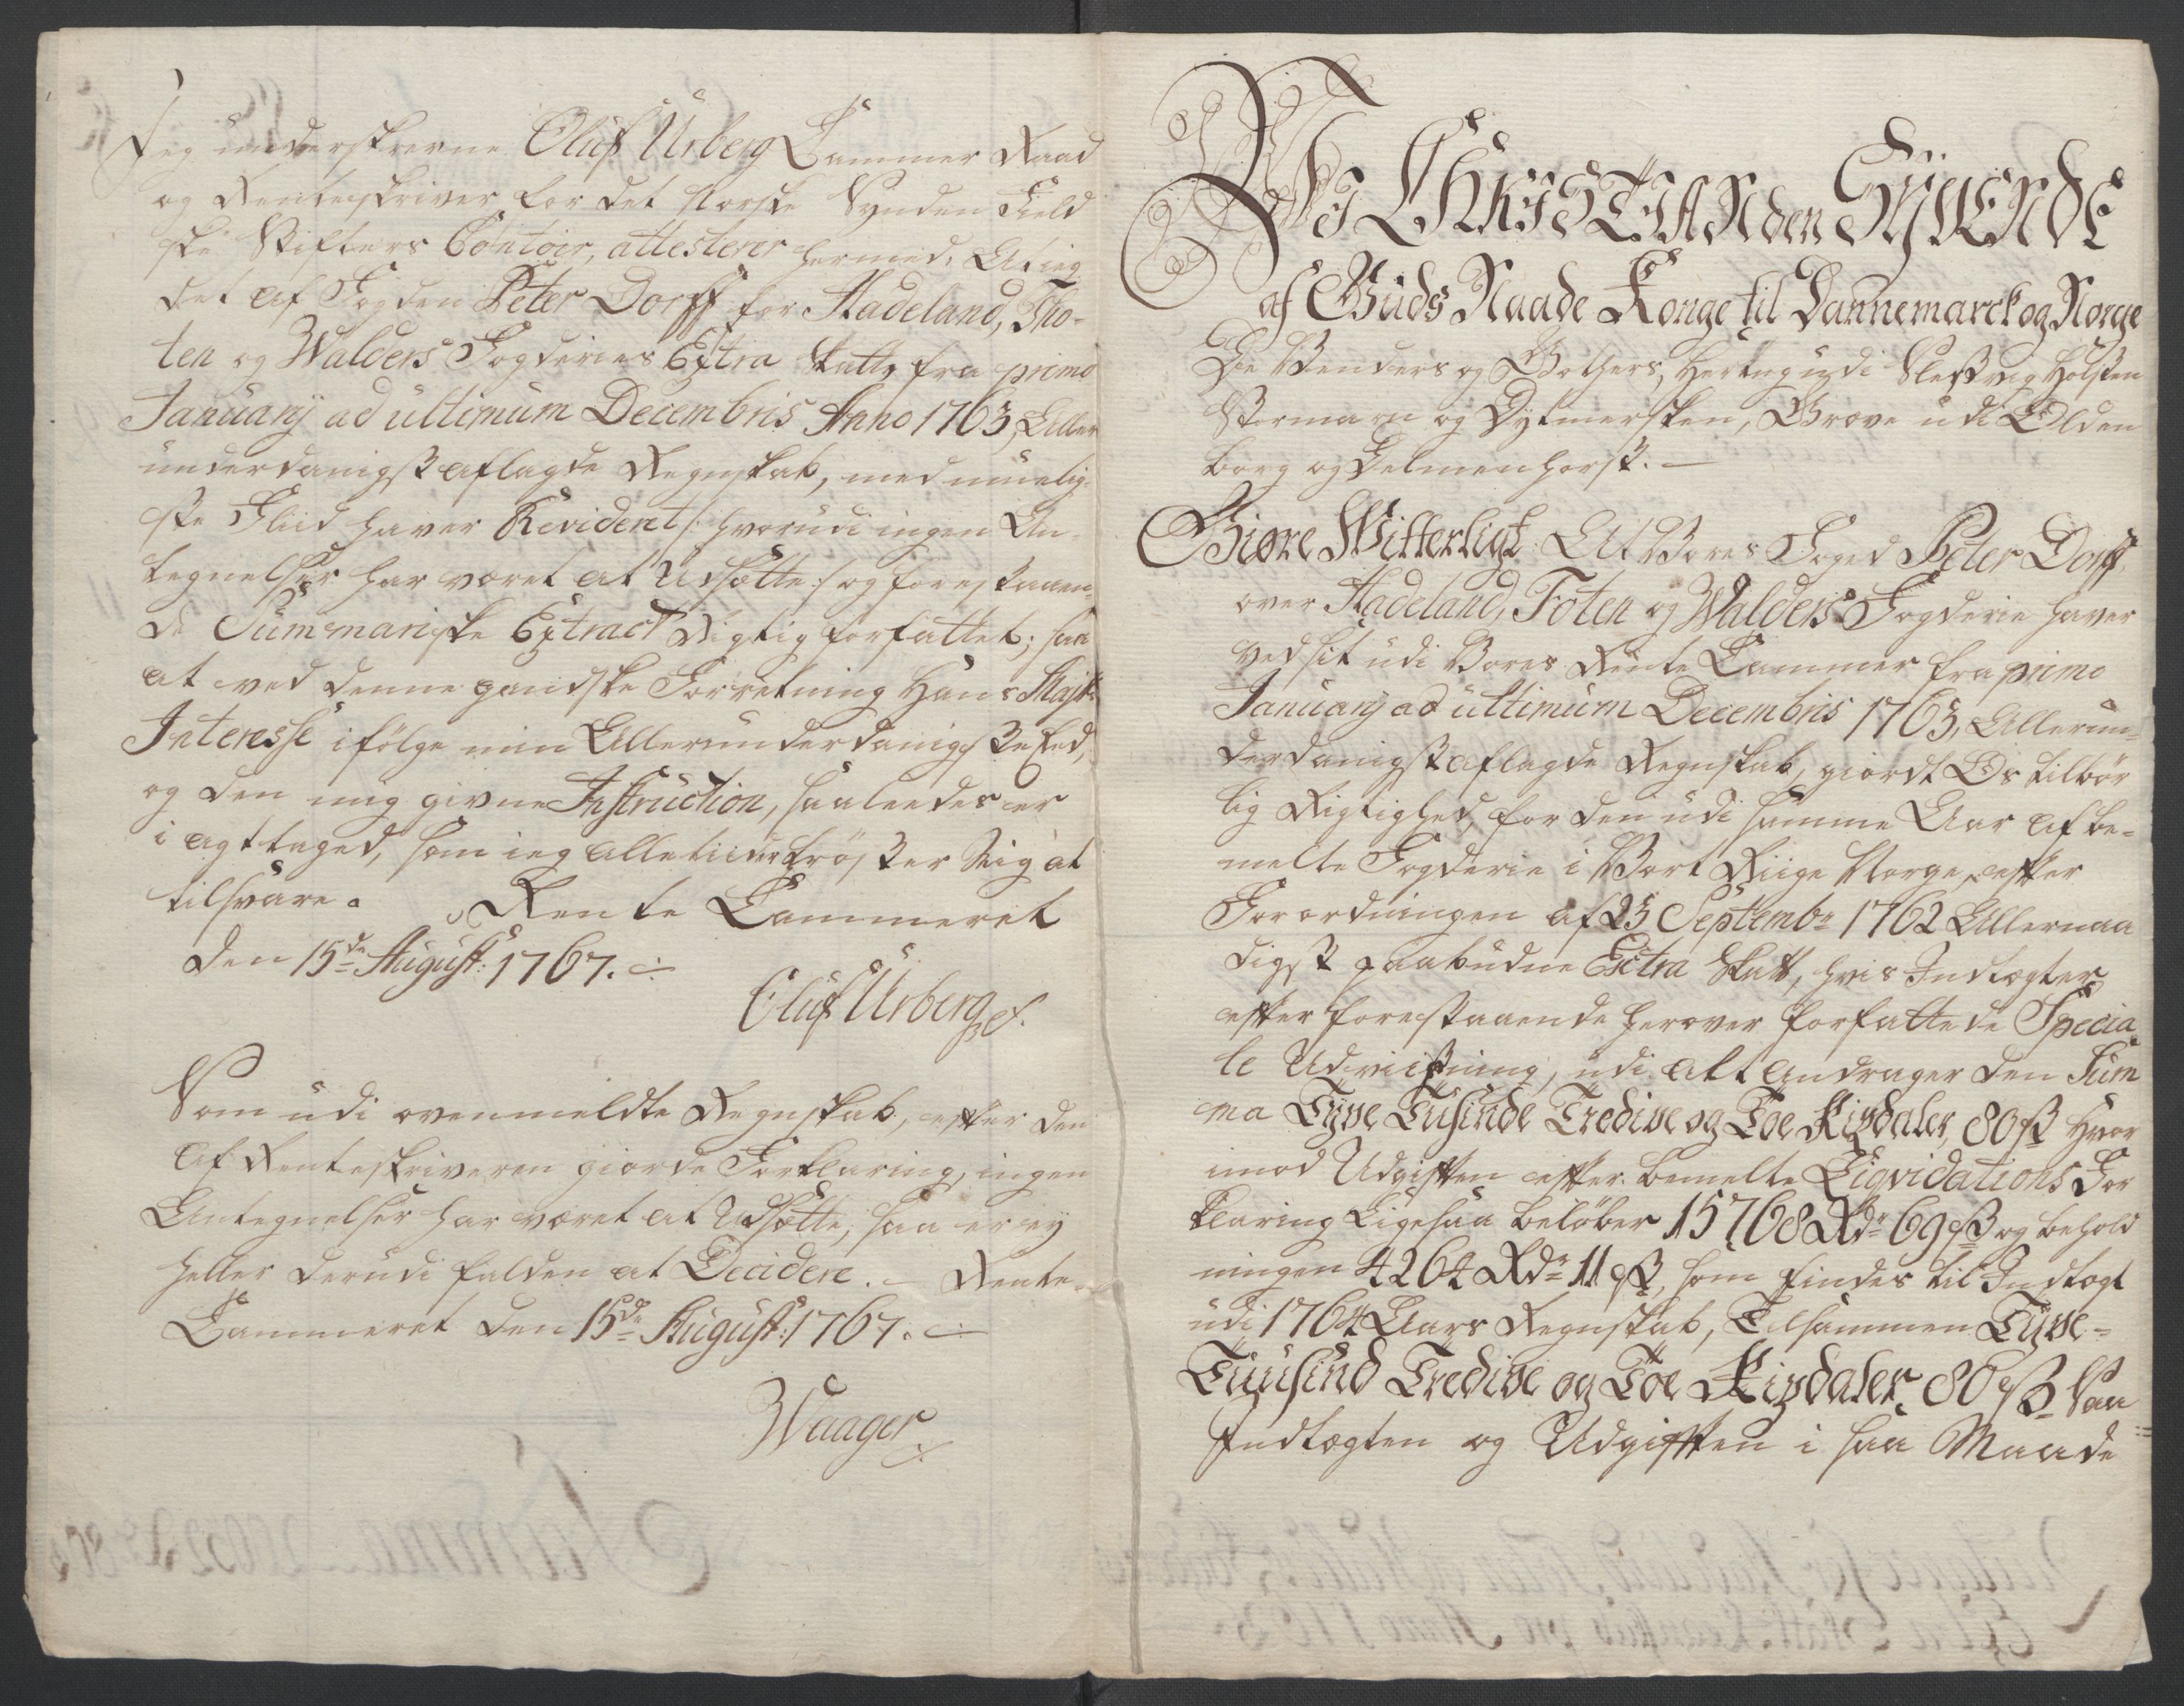 Jeg underskrevne Oluf Urberg Cammer Raad
og Renteskriver for det Norske Synden Field
ske Stifters Contoir, attesterer hermed, At ieg
det af Fogden Peter Dorff for Hadeland, Tho-
ten og Walders Fogderies Extra Skatts fra primo
Januarij ad ultimum Decembris Anno 1763, Aller
underdanigst aflagde Regnskab, med muelig-
ste Fliid haver Revideret /: hvorudi ingen An-
tegnelser har været at Udsætte :/ og forestaaen-
de Summariske Extract Rigtig forfattet; saa
at ved denne gandske Forretning Hans Majts
Interesse ifölge min Allerunderdanigste Eed,
og den mig givne Instruction, saaleedes er
i agttaged, som ieg alletiider tröster Mig at
tilsvare. Rente Cammeret
den 15de August: 1767.
Oluf Urberg
Som udi ovenmeldte Regnskab, efter den
af Renteskriveren giorde Forklaring, ingen
Antegnelser har været at Udsætte, saa er ey
heller derudi falden at Decidere. Rente-
Cammeret den 15de August: 1767.
Waager
Wi CHRISTIAN den SYVENDE
af Guds Naade Konge til Dannemarck og Norge
De Wenders og Gothers, Hertug udi Slesvig Holsten
Stormarn og Dytmersken, Greve udi Olden
borg og Delmenhorst.
Giøre Witterligt: At Vores Foged Peter Dorff
over Hadeland, Toten og Walders Fogderie haver
ved sit udi Vores Rente Cammer fra primo
Januarij ad ultimum Decembris 1763, Allerun-
derdanigst aflagde Regnskab, giordt Os tilbør
lig Rigtighed, for den udi samme Aar af be-
melte Fogderie i Vort Riige Norge, efter
Forordningen af 23 Septembr 1762 Allernaa
digst paabudne Extra Skatt, hvis Indtægter
efter forestaaende herover forfattede Specia
le Udviisning, udi alt andrager den Sum
ma Tyve Tusinde Tredive og Toe Rixdaler, 80 ß Hvor
imod Udgiften efter bemelte Liqvidations For
klaring Ligesaa beløber 15768 Rdr 69 ß og behold
ningen 4264 Rdr 11 ß, som findes til Indtægt
udi 1764 Aars Regnskab, Tilsammen Tyve-
Tuusind Tredive og Toe Rixdaler 80 ß Saa
Indtægten og Udgiften i saa Maade